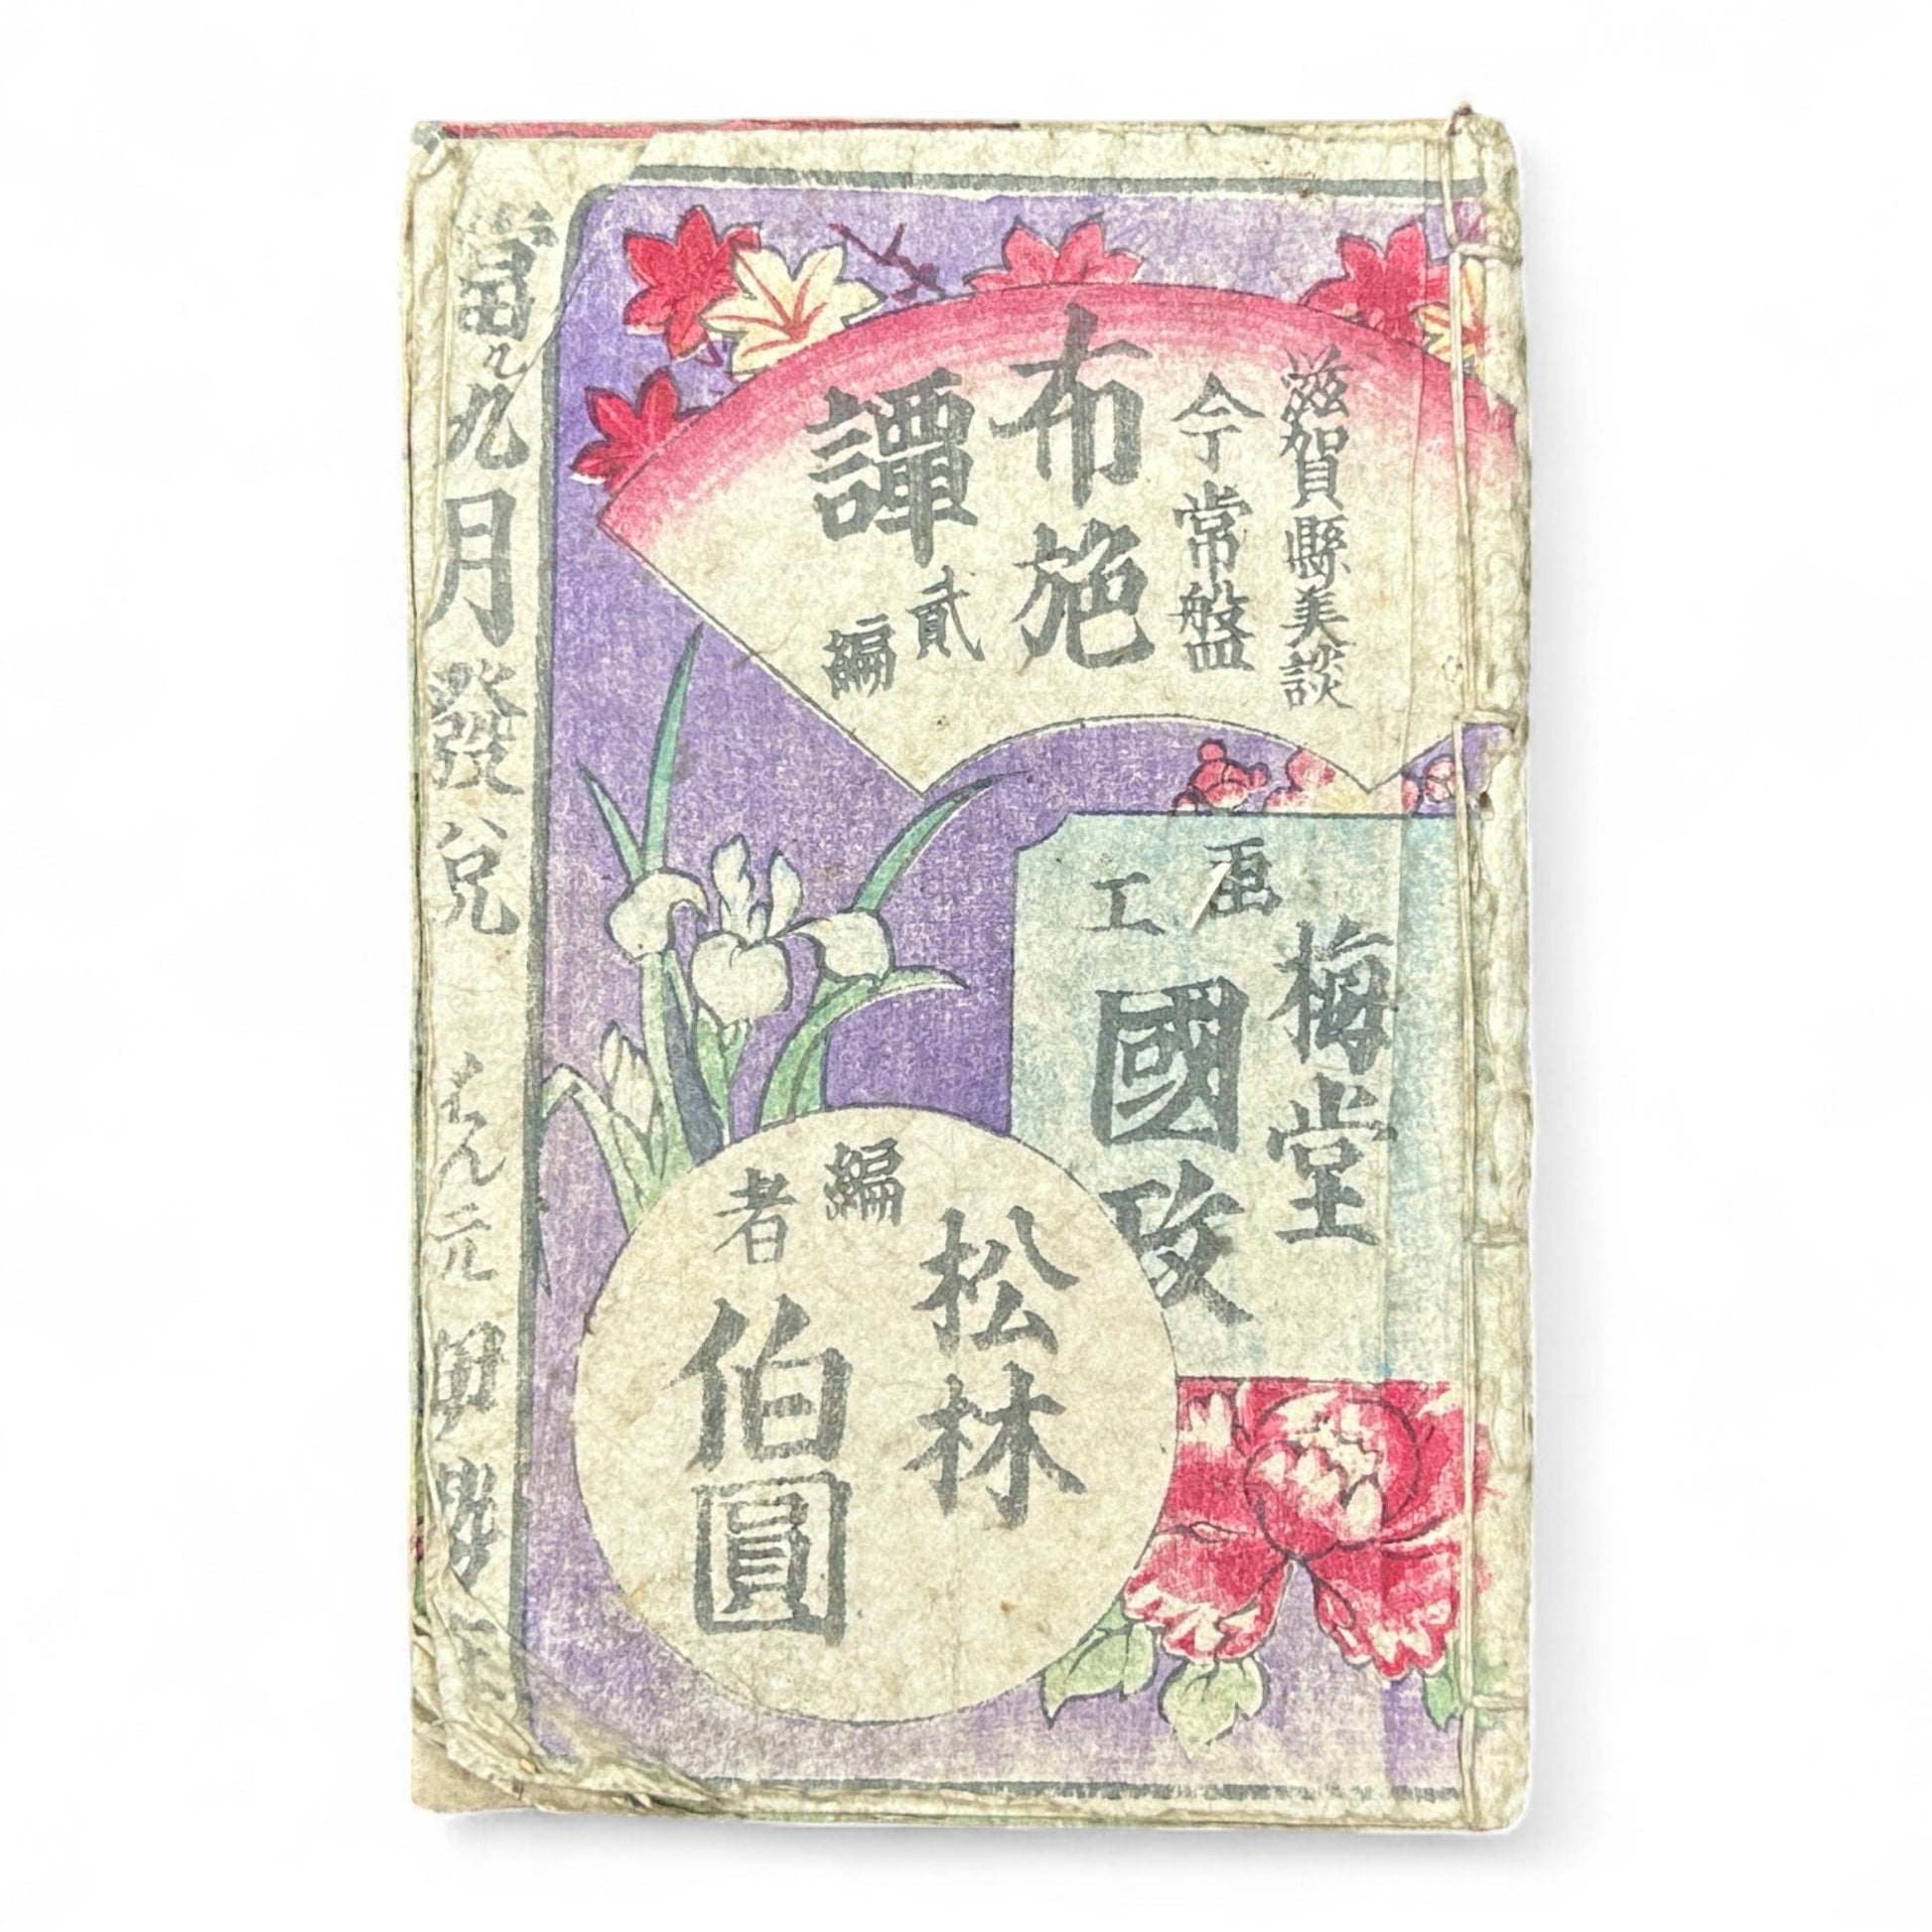 滋賀縣美談
今常盤
布施
譚
貳編
画工
梅堂
國政
編者
松林
伯圓
九月發兌
はん元